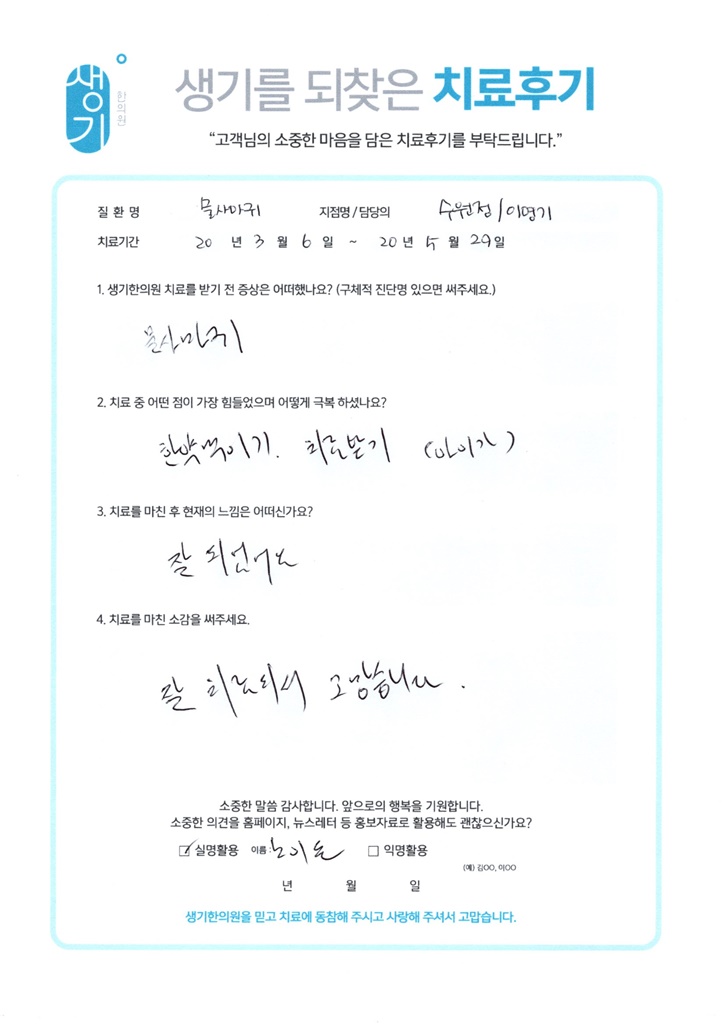 생기
한의원
생기를 되찾은 치료후기
“고객님의 소중한 마음을 담은 치료후기를 부탁드립니다.”
질 환 명 물사마귀 지점명 / 담당의 수원점/이명기
치료기간 20 년 3 월 6 일 ~ 20 년 5 월 29 일
1. 생기한의원 치료를 받기 전 증상은 어떠했나요? (구체적 진단명 있으면 써주세요.)
물사마귀
2. 치료 중 어떤 점이 가장 힘들었으며 어떻게 극복 하셨나요?
한약먹이기. 치료받기 (아이가)
3. 치료를 마친 후 현재의 느낌은 어떠신가요?
잘 되었어요
4. 치료를 마친 소감을 써주세요.
잘 치료되서 고맙습니다.
소중한 말씀 감사합니다. 앞으로의 행복을 기원합니다.
소중한 의견을 홈페이지, 뉴스레터 등 홍보자료로 활용해도 괜찮으신가요?
☑ 실명활용 이름: 노이 □ 익명활용
(예) 김OO, 이OO
년 월 일
생기한의원을 믿고 치료에 동참해 주시고 사랑해 주셔서 고맙습니다.